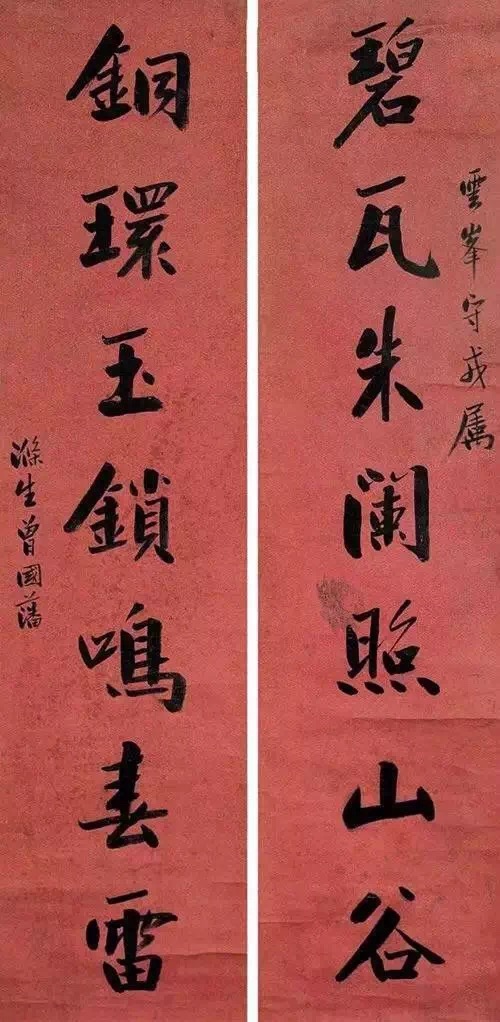 碧瓦朱阑照山谷
雲峯守戎属
銅環玉鎖鳴春雷
滌生曾國藩